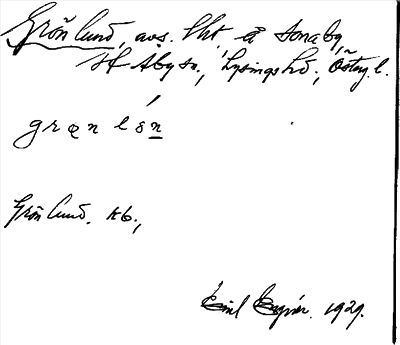 Grönlund, avs. lht å Tonaby,
V. Åby sn., Lysings hd., Österg. l.
grøn lön
Grönlund. kb.,
Emil 1929.